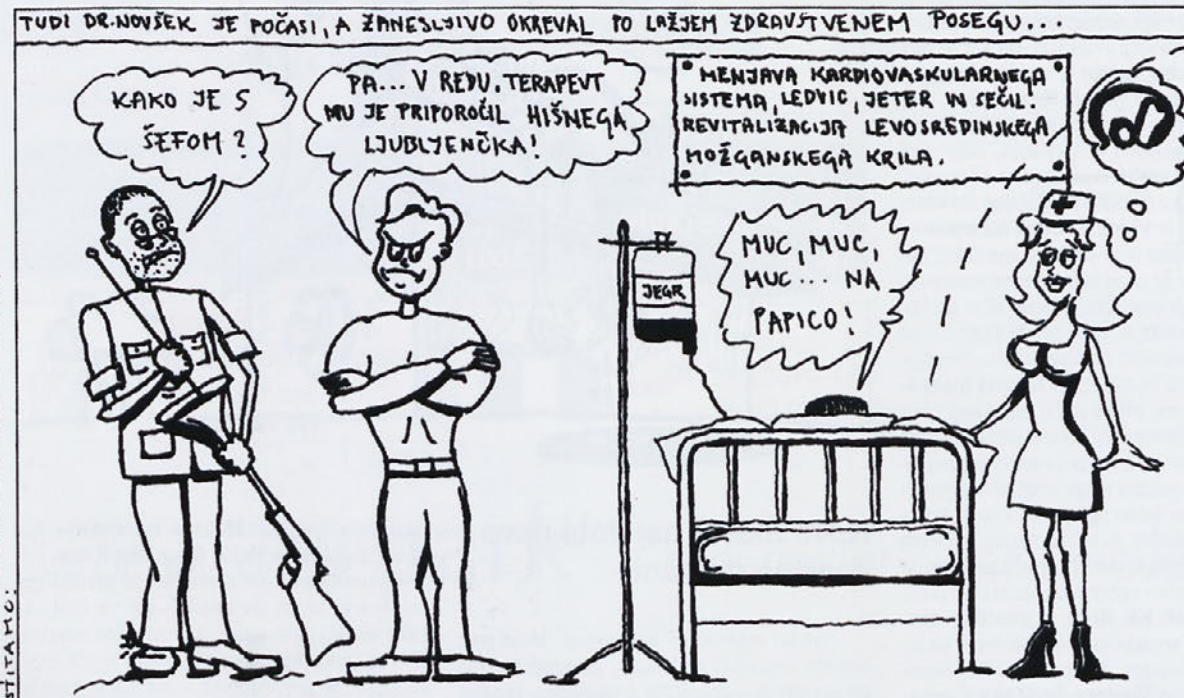 TUDI DR.NOVŠEK JE POČASI, A ZANESLJIVO OKREVAL PO LAŽJEM ZDRAVSTVENEM POSEGU...
KAKO JE S
ŠEFOM?
PA... V REDU. TERAPEVT
MU JE PRIPOROČIL HIŠNEGA
LJUBLJENČKA!
MENJAVA KARDIOVASKULARNEGA
SISTEMA, LEDVIC, JETER IN SEČIL.
REVITALIZACIJA LEVOSREDINSKEGA
MOŽGANSKEGA KRILA.
JEGR
MUC, MUC,
MUC... NA
PAPICO!